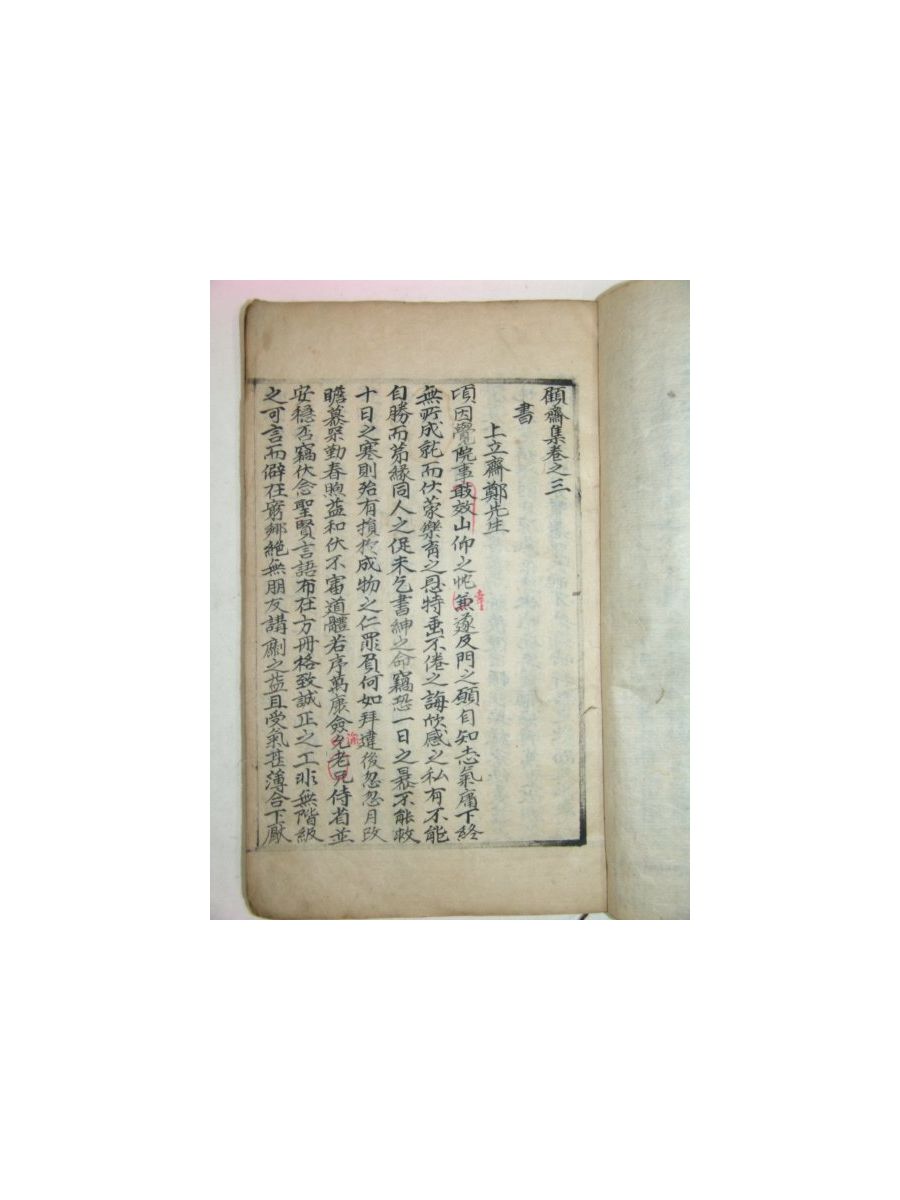 顧齋集卷之三
書
上立齋鄭先生
頃因黌院事敢效山仰之忱兼遂及門之願自知志氣庸下終
無所成就而伏蒙樂育之恩特垂不倦之誨欣感之私有不能
自勝而第緣同人之促未乞書紳之命竊恐一日之暴不能救
十日之寒則殆有損於成物之仁罪負何如拜違後忽忽月改
瞻慕冞勤春煦益和伏不審道體若序萬康僉允老兄侍省並
安穩否竊伏念聖賢言語布在方冊格致誠正之工非無階級
之可言而僻在窮鄕絶無朋友講劘之益且受氣甚薄合下厭
幸